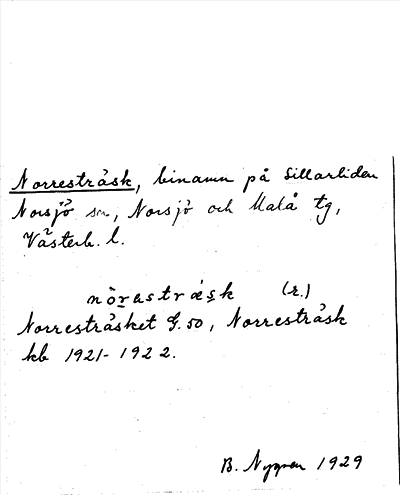 Norresträsk, binamn på Sillarliden
Norsjö sn, Norsjö och Malå tg,
Västerb. l.
nò̤rastræ̀sk (r.)
Norresträsket G. 50, Norresträsk
kb 1921-1922.
B. Nygren 1929